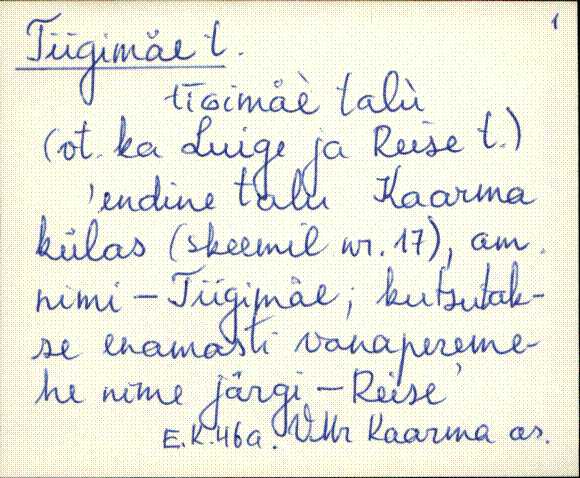 1
Tiigimäe t.
tīGimäè talù
(vt. ka Luige ja Reise t.)
'endine talu Kaarma
külas (skeemil nr. 17), am.
nimi – Tiigimäe; kutsutak-
se enamasti vanapereme-
he nime järgi – Reise'
E.K. 46a. VMr Kaarma as.